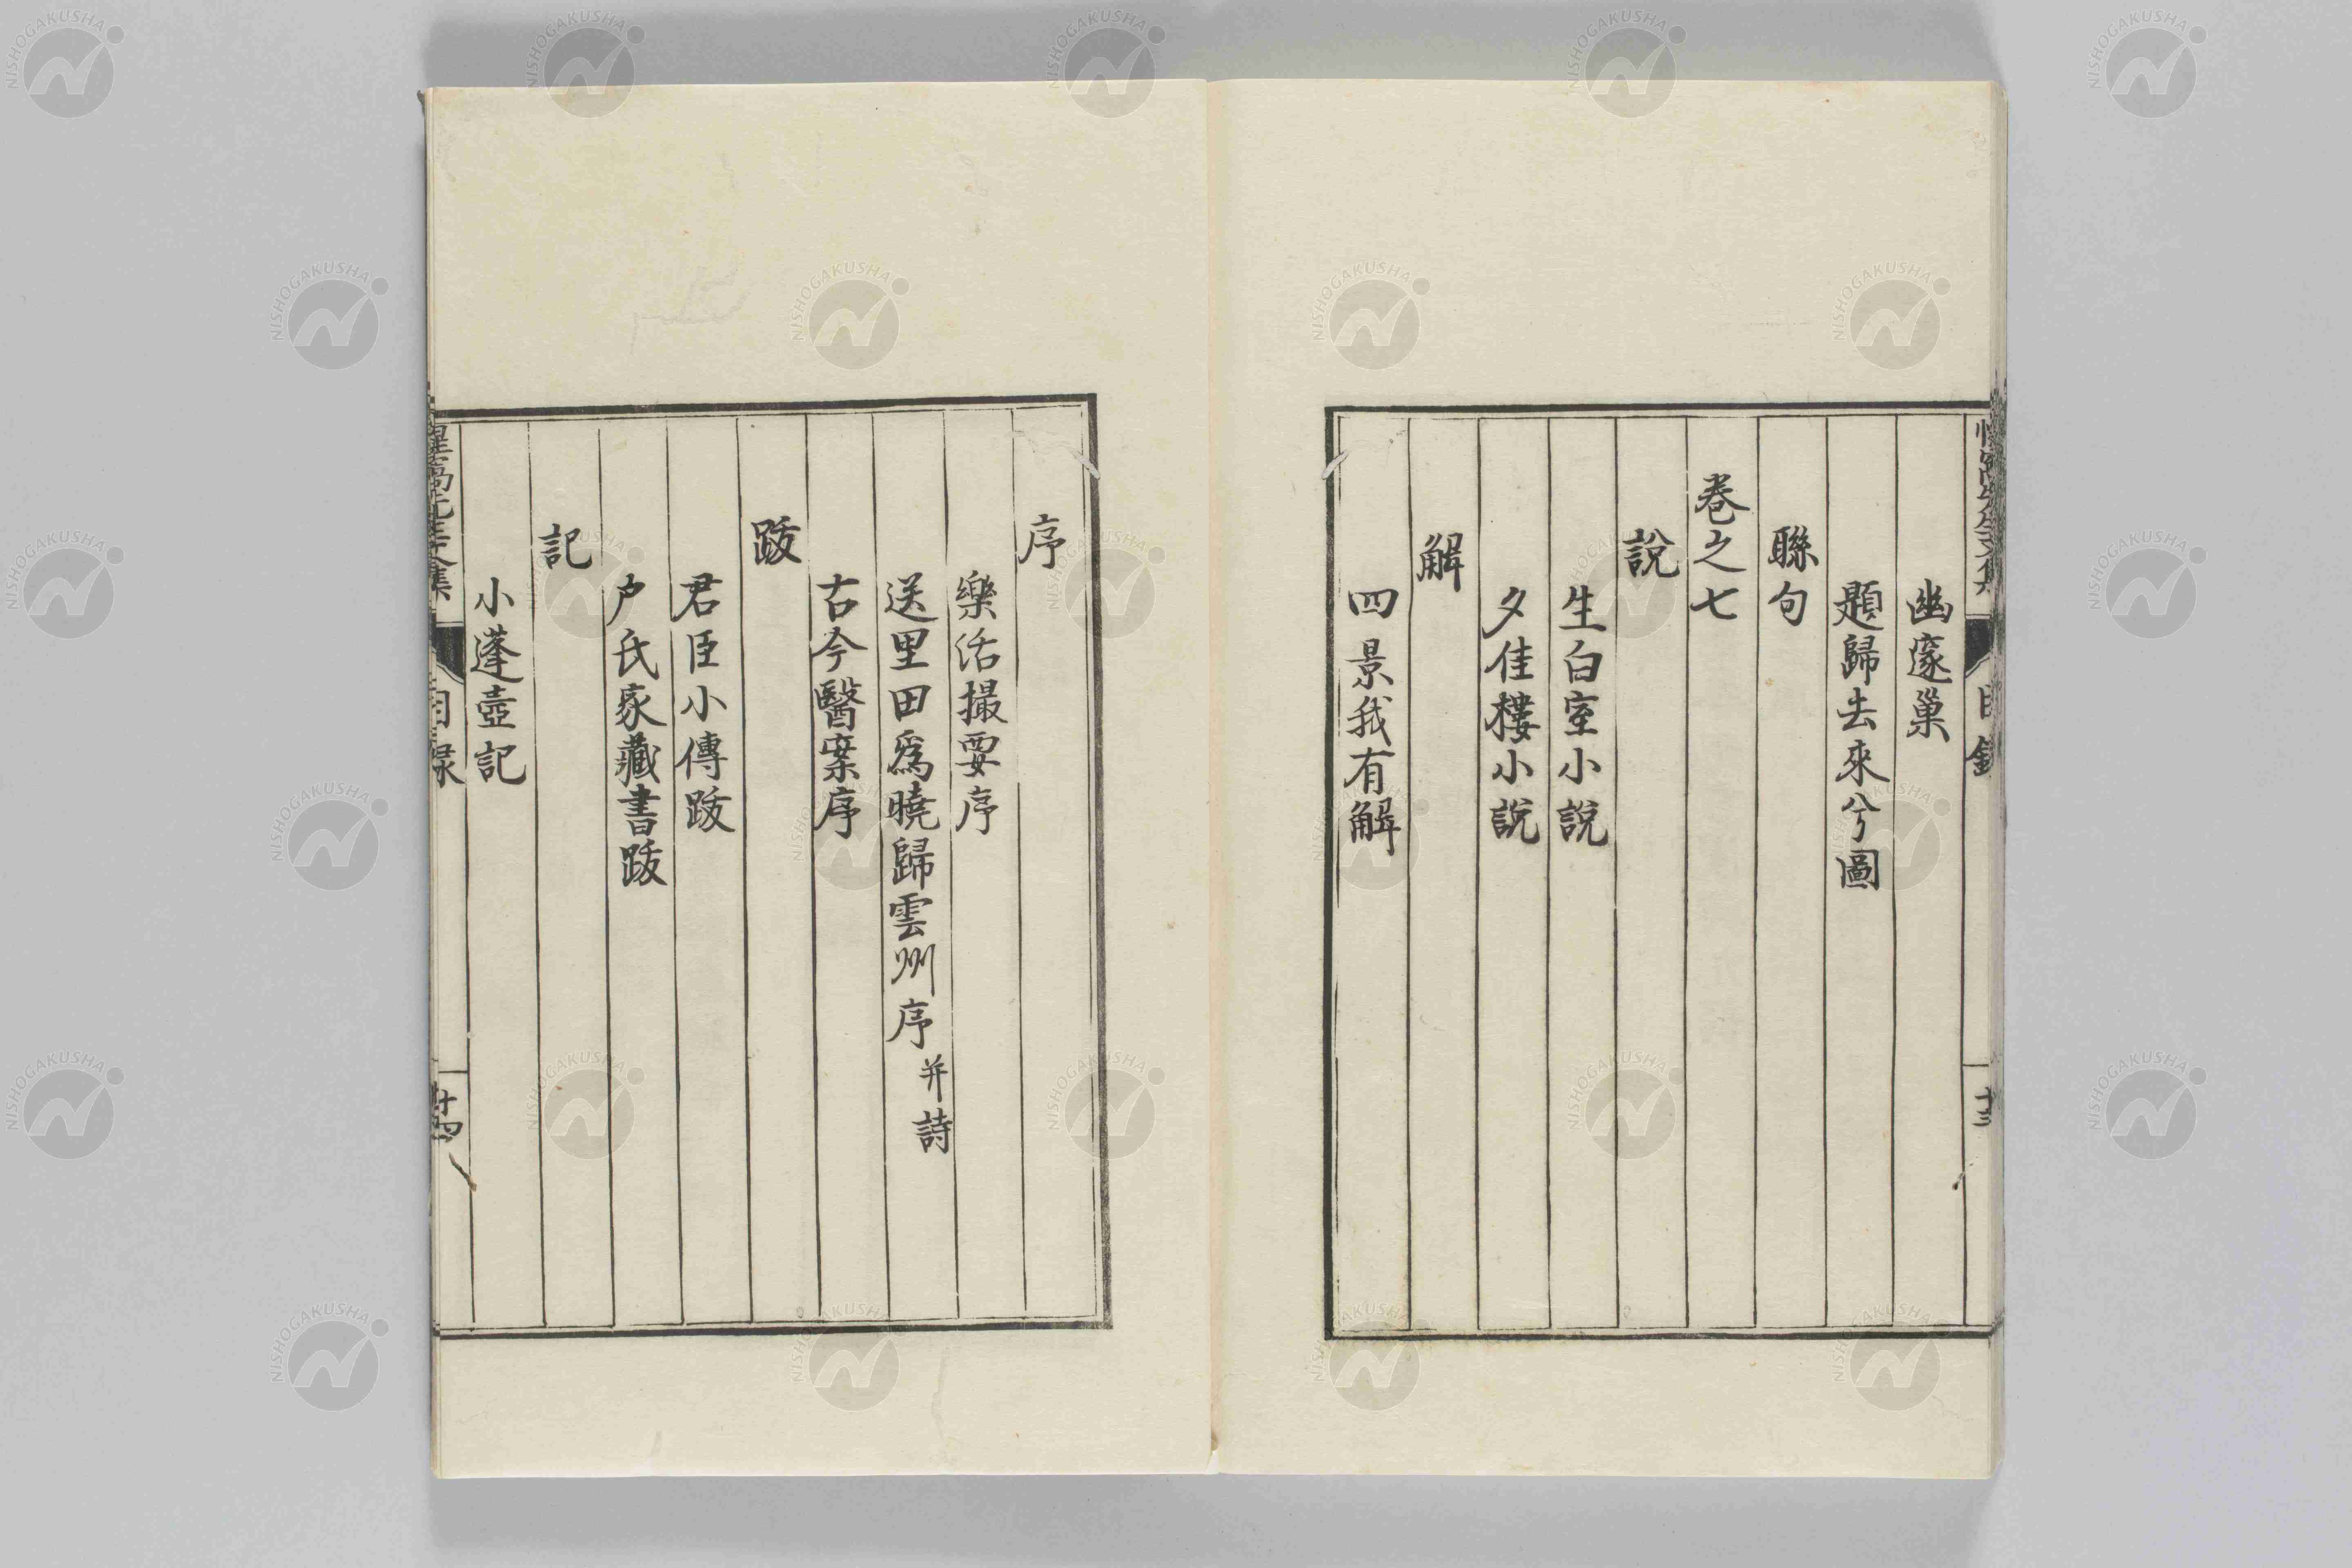 幽邃巢
題歸去來兮圖
聯句
卷之七
說
生白室小說
夕佳樓小說
解
四景我有解
序
樂活撮要序
送里田爲曉歸雲州序 并詩
古今醫案序
跋
君臣小傳跋
戶氏家藏書跋
記
小蓬壺記
目錄
十四
目錄
十三
NISHOGAKUSHA